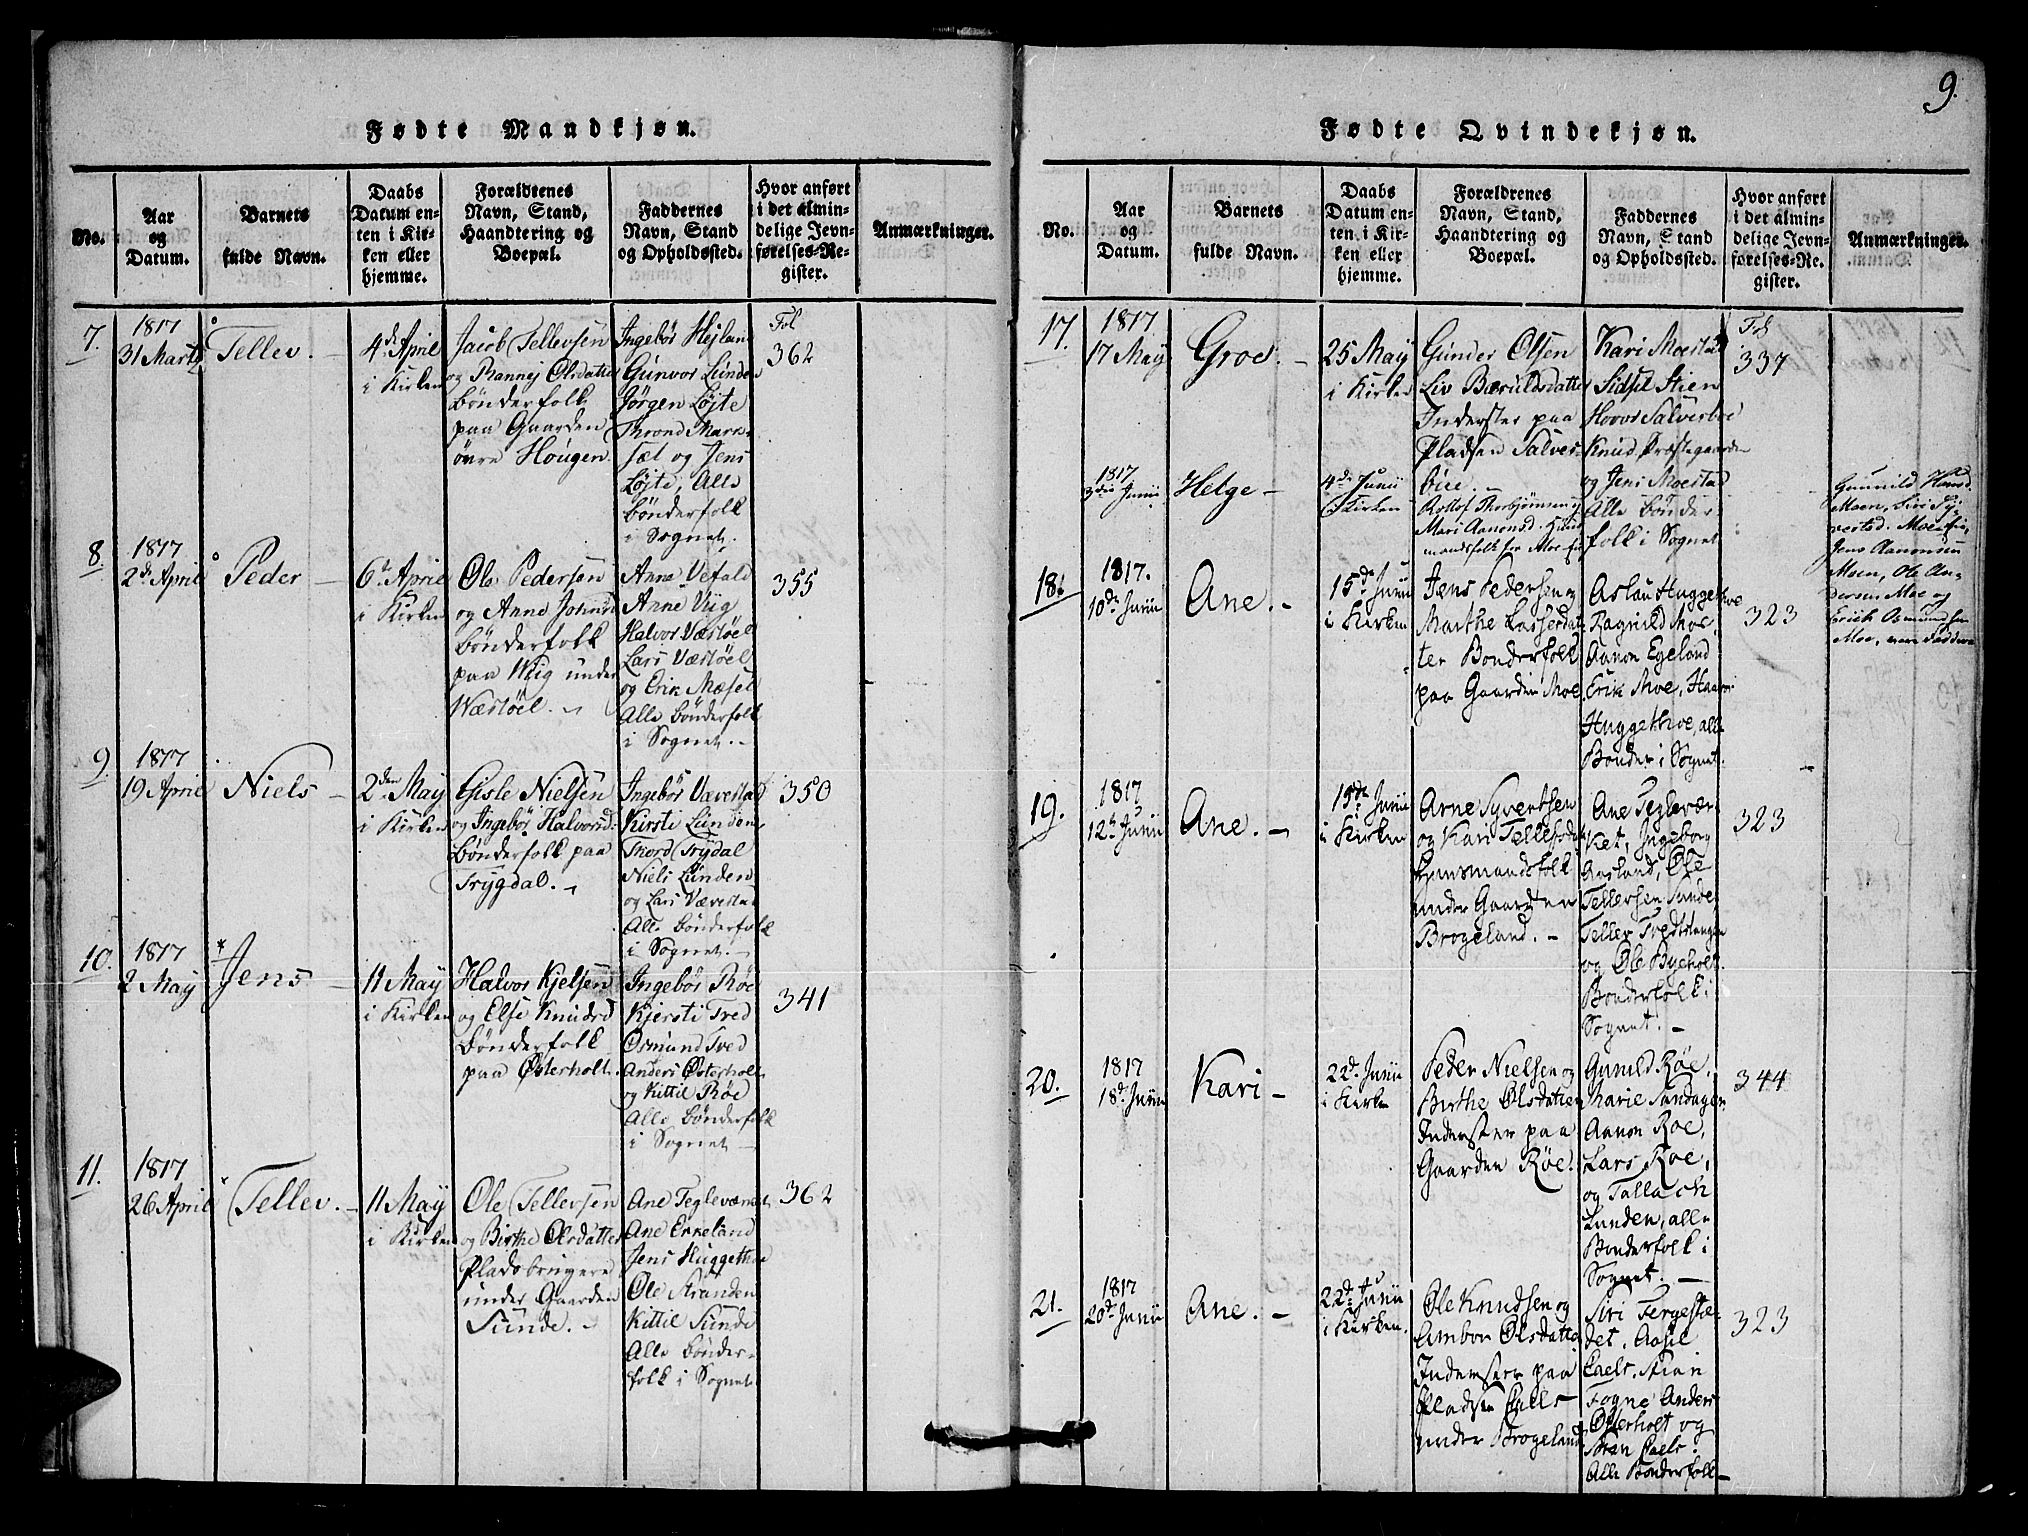 9.
Fødte Mandkjøn.
No.
Aar
og
Datum.
Barnets
fulde Navn.
Daabs
Datum en-
ten i Kir-
ken eller
hjemme.
Forældrenes
Navn, Stand,
Haandtering og
Boepæl.
Faddernes
Navn, Stand
og Opholdssted.
Hvor anført
i det almin-
delige Jevn-
førelses-Re-
gister.
Anmærkninger.
7.
1817
31 Marts
Tellev.
4de April
i Kirken
Jacob Tellevsen
og Rannej Olsdatter
Bønderfolk
paa Gaarden
øvre Hougen
Ingebør Hejlan
Gunvor Lunden
Jørgen Løjte
Thrond Mark-
sæl og Jens
Løjte, Alle
Bønderfolk
i Sognet.
Fol
362
8.
1817
2de April
Peder
6te April
i Kirken
Ole Pedersen
og Anne Johnsd
Bønderfolk
paa Wiig under
Wæstøel.
Anne Vefald
Anne Viig
Halvor Væstøel
Lars Væstøel
og Erik Mæsel
Alle Bønderfolk
i Sognet.
355
9.
1817
19 April
Niels
2den May
i Kirken
Gisle Nielsen
og Ingebør Halvorsd:
Bønderfolk paa
Trygdal.
Ingebør Vævestad
Kirsti Lunden
Thord Trydal
Niels Lunden
og Lars Vævestad
Alle Bønderfolk
i Sognet.
350
10.
1817
2 May
Jens
11 May
i Kirken
Halvor Kjelsen
og Else Knudsd
Bønderfolk
paa Østerholt.
Ingebør Røe
Kjersti Tved
Osmund Tved
Anders Østerholt
og Kittil Røe
Alle Bønderfolk
i Sognet
341
11.
1817
26 April
Tellev.
11 May
i Kirken
Ole Tellevsen
og Birthe Olsdatter
Pladsbrugere
under Gaarden
Sunde.
Ane Tegleværket
Ane Erkeland
Jens Huggethoe
Ole Stranden
Kittil Sunde
Alle Bønder-
folk i Sognet
362
Fødte Qvindekjøn.
No.
Aar
og
Datum.
Barnets
fulde Navn.
Daabs
Datum en-
ten i Kir-
ken eller
hjemme.
Forældrenes
Navn, Stand,
Haandtering og
Boepæl.
Faddernes
Navn, Stand
og Opholdssted.
Hvor anført
i det almin-
delige Jevn-
førelses-Re-
gister.
Anmærkninger.
17.
1817
17 May
Groe.
25 May
i Kirken
Gunder Olsen
Liv Bæruldsdatter
Inderster paa
Pladsen Salver-
büe.
Kari Moestad
Sidsel Stien
Hovor Salverboe
Knud Præstegaarden
og Jens Moestad
Alle Bønder
folk i Sognet
Fol
337
1817
3die Junii
Helge
4de Junii
i Kirken
Rollof Thorbjørnsen og
Mari Aanonsd. Huus
mandsfolk fra Moe Eie
Gunnild Hansd.
Moen, Siri Sy-
vertsd. Moe Eie,
Jens Aanonsen
Moen, Ole An-
dersen Moe og
Erich Osmundsen
Moe, vare Faddere
18.
1817.
10de Junii
Ane.
15de Junii
i Kirken
Jens Pedersen og
Marthe Lassesdat-
ter Bonderfolk
paa Gaarden Moe
Aslau Huggethoe
Ragnild Moe,
Aanon Egeland
Erik Moe, Haavor
Huggethoe, alle
Bonder i Sognet.
323
19.
1817
12te Junii
Ane.
15de Junii
i Kirken
Arne Syvertsen
og Kari Tellefsdat
Huusmandsfolk
under Gaarden
Brogeland.
Ane Teglevær-
ket, Ingeborg
Aasland, Ole
Tellefsen Sunde,
Tellef Tvedtslangen
og Ole Byeholt.
Bonderfolk i
Sognet.
323
20.
1817
18de Junii
Kari
22de Junii
i Kirken
Peder Nielsen og
Birthe Olsdatter
Inderster paa
Gaarden Røe.
Gunild Røe,
Marie Sandagen
Aanon Roe,
Lars Roe,
og Tallach
Lunden, alle
Bonderfolk i
Sognet.
344
21.
1817
20de Junii
Ane.
22de Junii
i Kirken.
Ole Knudsen og
Ambor Olsdatter
Inderster paa
Pladsen Caels
under Brogeland
Siri Fergeste-
det, Aasil
Caels, Stian
Fogne Anders
Østerholt og
Bren Caels.
Alle Bonderfolk
323